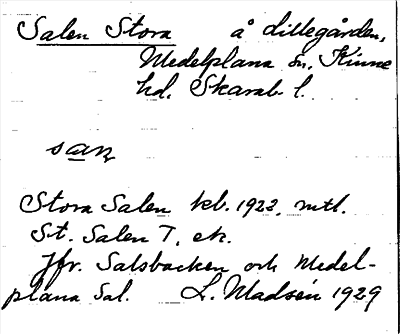 Salen Stora å Lillegården,
Medelplana sn. Kinne
hd. Skarab. l.
Stora Salen kb. 1922, mtl.
St. Salen T. ek.
Jfr. Salsbacken och Medel-
plana Sal. L. Madsén 1929